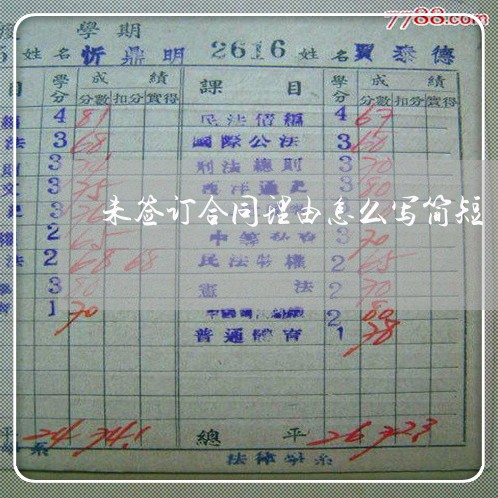 7788.com
學期
姓名 忻鼎明 2616 姓名 賈泰德
目 學分 成績 課目 學分 成績
分數 扣分 實得 分數 扣分 實得
4 81 民法債編 4 67
法 3 68 國際公法 3 60
3 刑法總則 3 70
文 3 75 西洋通史 3 80
未签订合同理由怎么写简短
2 65 3 70
法 2 68 68 民法物權 2 65
3 80 憲法 2 70
1 70 2 80
普通體育 1 78
平 24 74.1 總平 26 72.3
系 法律學系